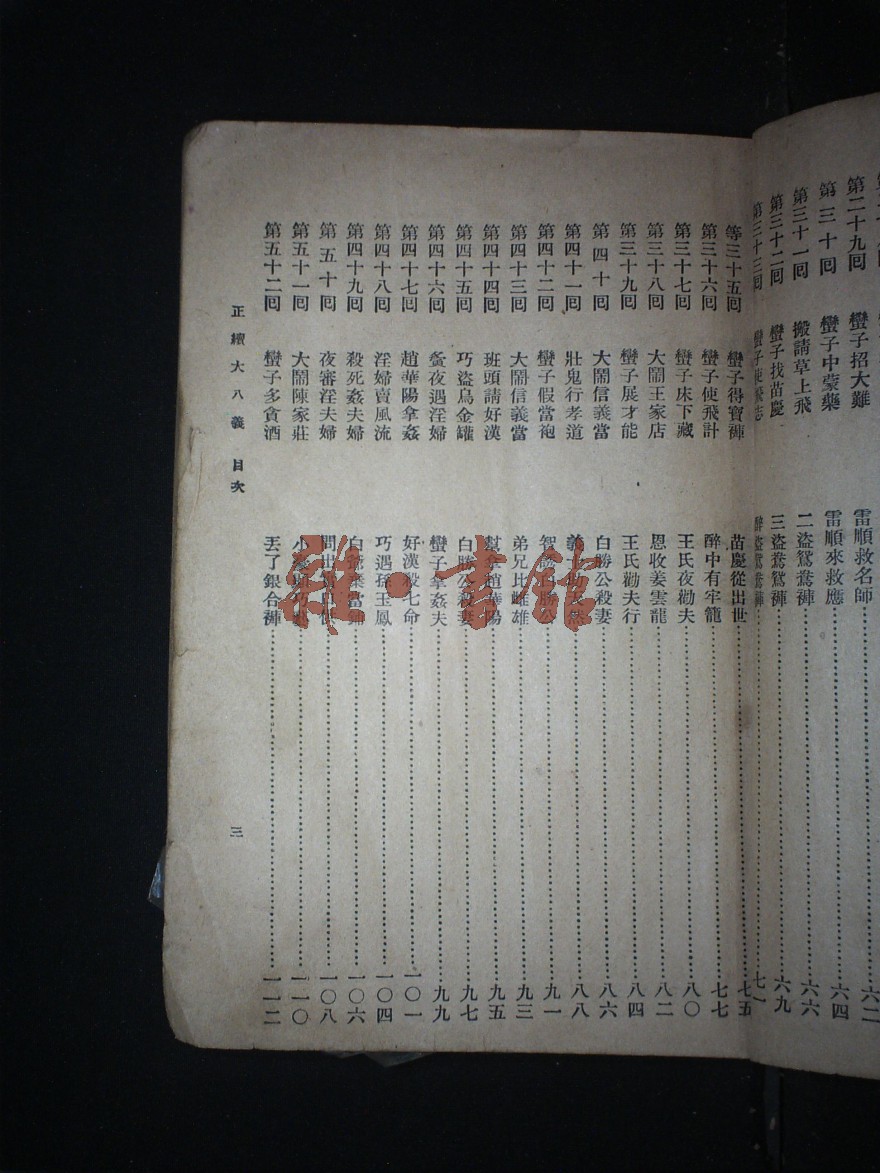 第二十九回 蠻子招大難 雷順收名師……六二
第三十回 蠻子中蒙藥 雷順來救應……六四
第三十一回 搬請草上飛 二盜鴛鴦褲……六六
第三十二回 蠻子找苗慶 三盜鴛鴦褲……六九
第三十三回 蠻子使飛志 醉盜鴛鴦褲……七一
等三十五回 蠻子得寶褲 苗慶從出世……七五
第三十六回 蠻子使飛計 醉中有牢籠……七七
第三十七回 蠻子床下藏 王氏夜勸夫……八〇
第三十八回 大鬧王家店 恩收姜雲龍……八二
第三十九回 蠻子展才能 王氏勸夫行……八四
第四十回 大鬧信義當 白勝公殺妻……八六
第四十一回 壯鬼行孝道 義助……八八
第四十二回 蠻子假當袍 智誘白勝公……九一
第四十三回 大鬧信義當 弟兄比雌雄……九三
第四十四回 班頭請好漢 幫拿趙華陽……九五
第四十五回 巧盜烏金罐 白勝公殺妻……九七
第四十六回 夤夜遇淫婦 蠻子拿姦夫……九九
第四十七回 趙華陽拿姦 好漢殺七命……一〇一
第四十八回 淫婦賣風流 巧遇孫玉鳳……一〇四
第四十九回 殺死姦夫婦 白……當……一〇六
第五十回 夜審淫夫婦 問出……一〇八
第五十一回 大鬧陳家莊 小……一一〇
第五十二回 蠻子多貪酒 丟了銀合褲……一一二
正續大八義 目次
三
雜·書館